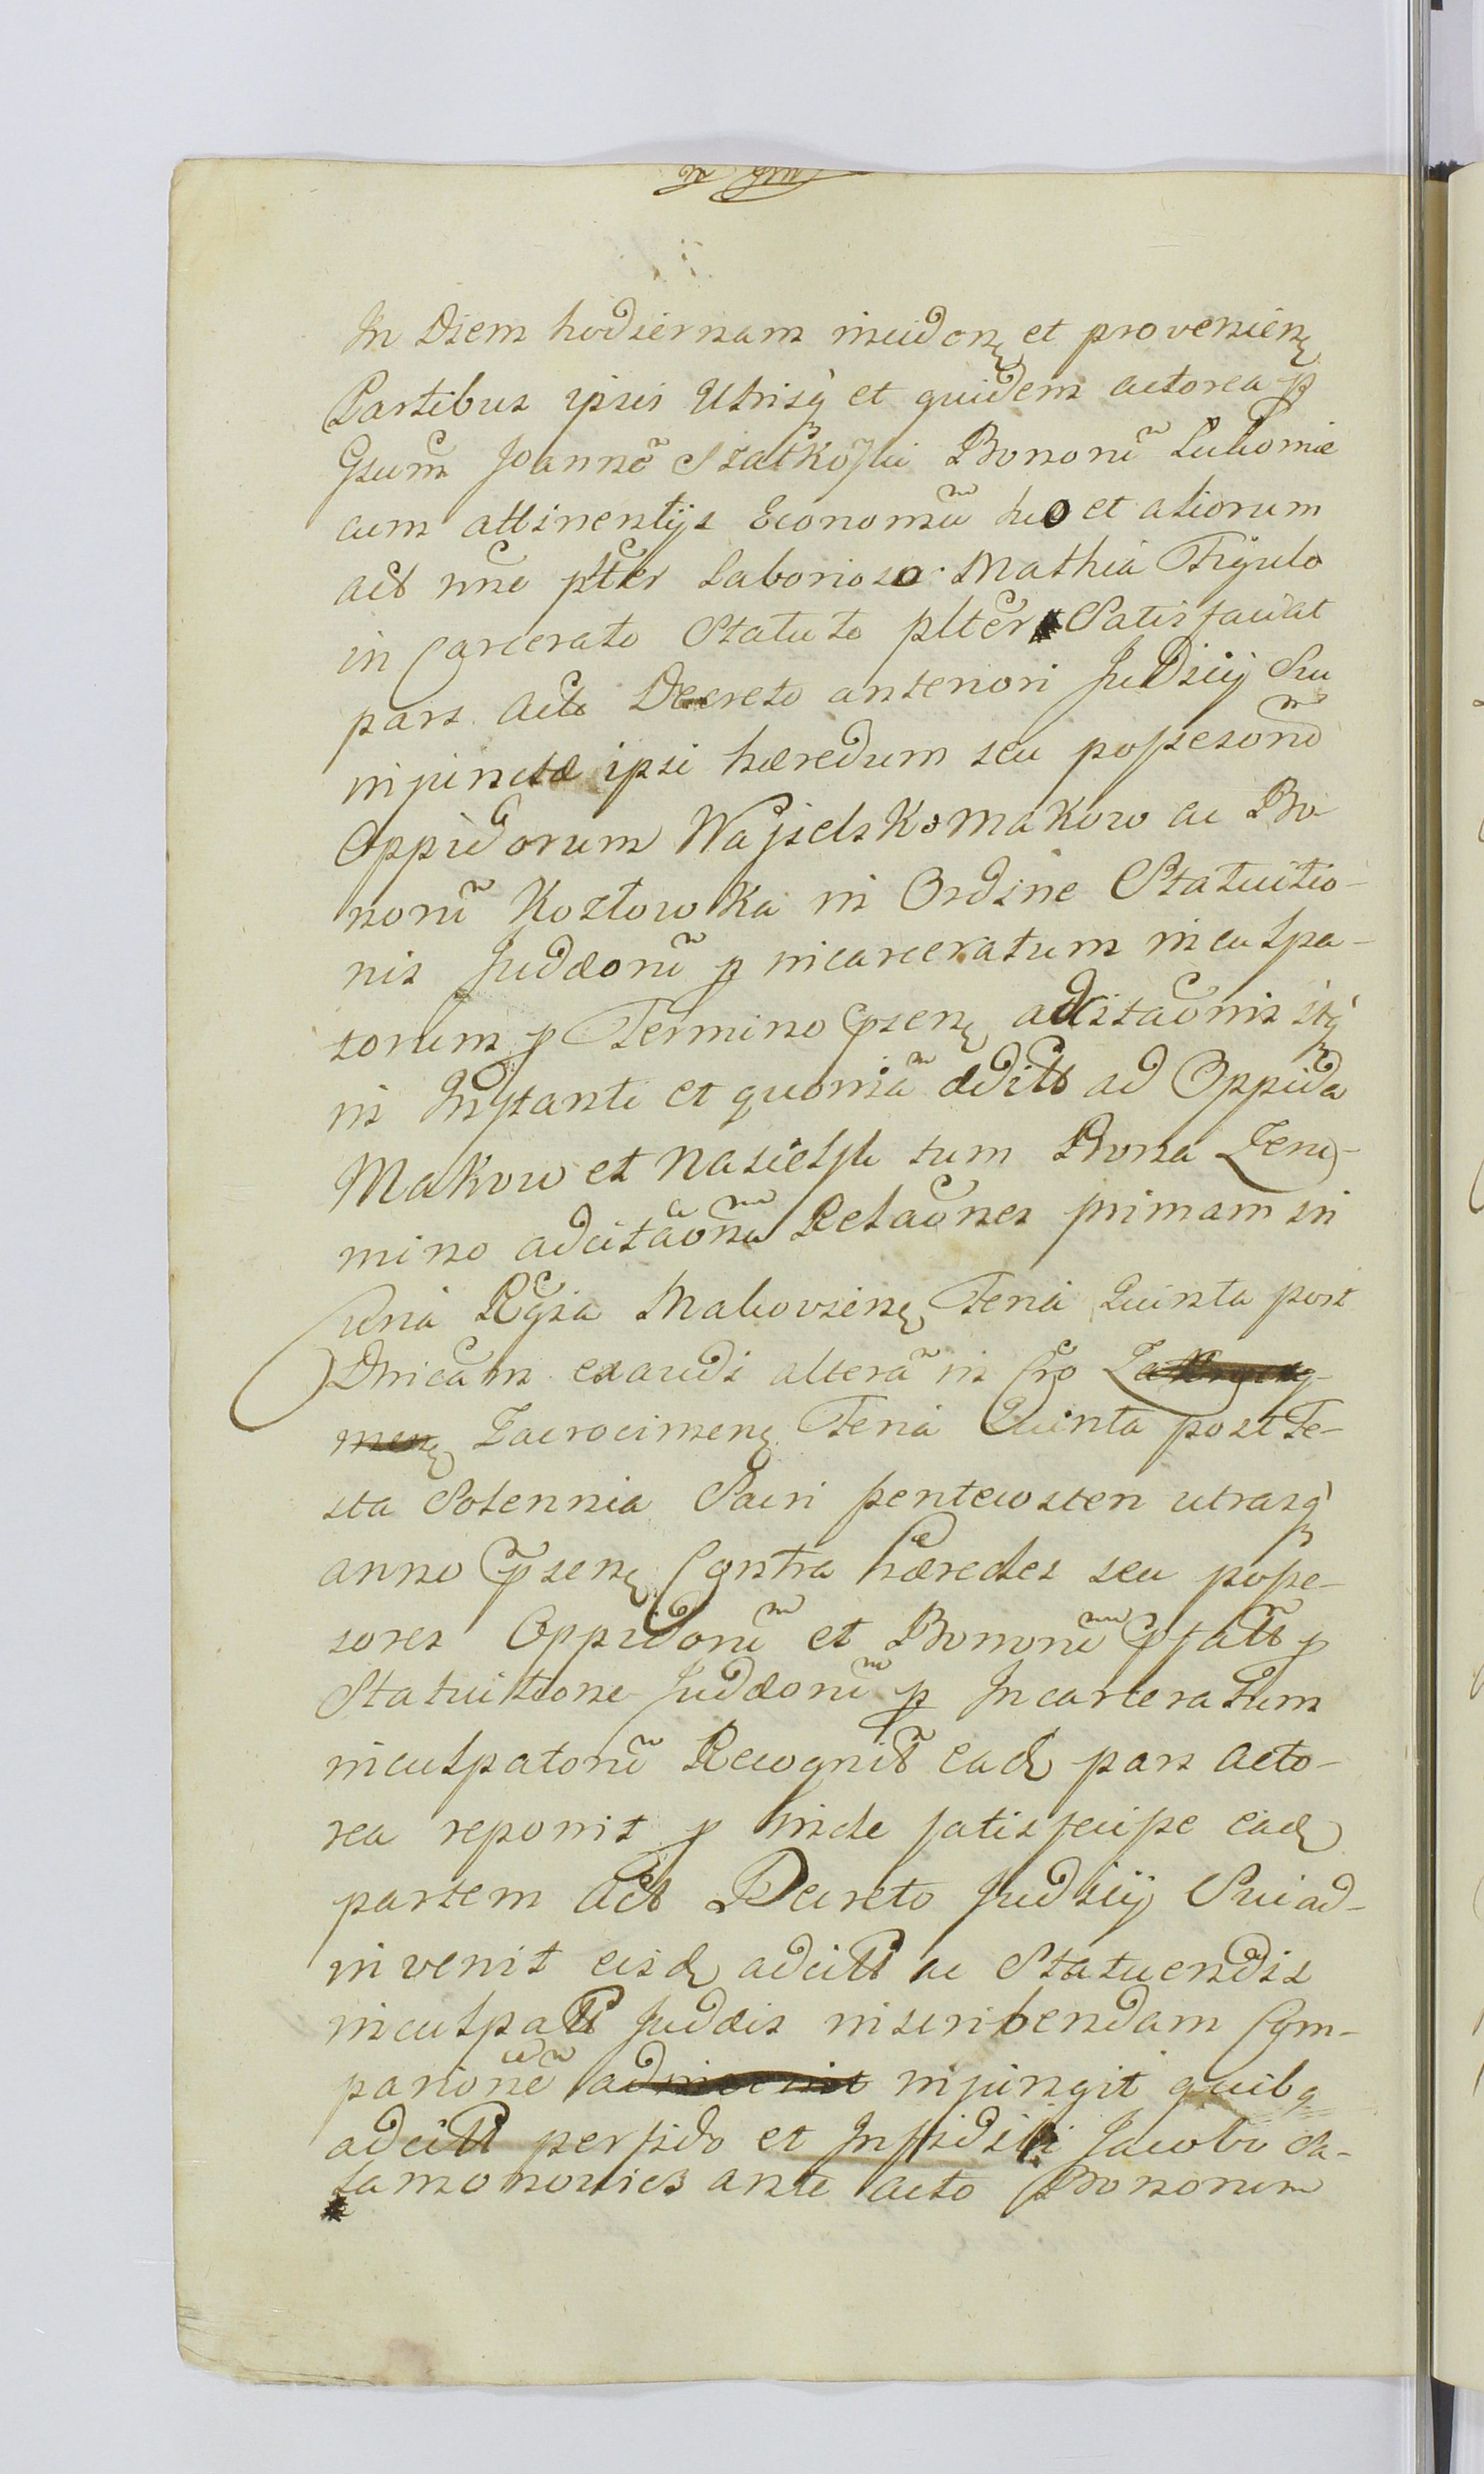 In Diem hodiernam inciden et provenien
Partibus ipsis Utrisq et quidem actorea p
Gsum Joannē Szatkoski Bonorū Luhomie
cum attinentijs Economū suo et aliorum
act nne plter Laborioso Mathia Figulo
in Carcerato Statuto plter Satisfaciat
pars Acta Decreto anteriori Judicij Sui
injunctæ ipsi hæredum seu possesorū
Oppidorum Najsielsko Makow ac Bo
norū Kozłowka in Ordine Statuitio-
nis Judæorū p incarceratum inculpa-
torum p Termino psen adcitaōnis itq
in Instanti et quoniā adcitt ad Oppida
Makow et Nasielsk tum Bona Zeno-
mino adcitaōnū Relaōnes primam in
Curia Rgia Makovien Feria Quinta post
Dnicam exaudi alterā in Cro
Zacrocimen Feria Quinta post Fe-
sta Solennia Sacri pentecosten utrasq
anno psen Contra hæredes seu posse-
sores Oppidorū et Bonorū pfatt p
Statuitione Judæorū p Incarceratum
inculpatorū Recognitt ead pars acto-
rea reponit p inde satisfecisse ead
partem Act Decreto Judicij Sui ad-
invenit eisd adcitt ac Statuendis
inculpatt Judæis inscribendam Com-
parionē injungit quibq
adcitt perfido et Infidili Jacobo Sa-
lamonowicz ante acto Bonorum